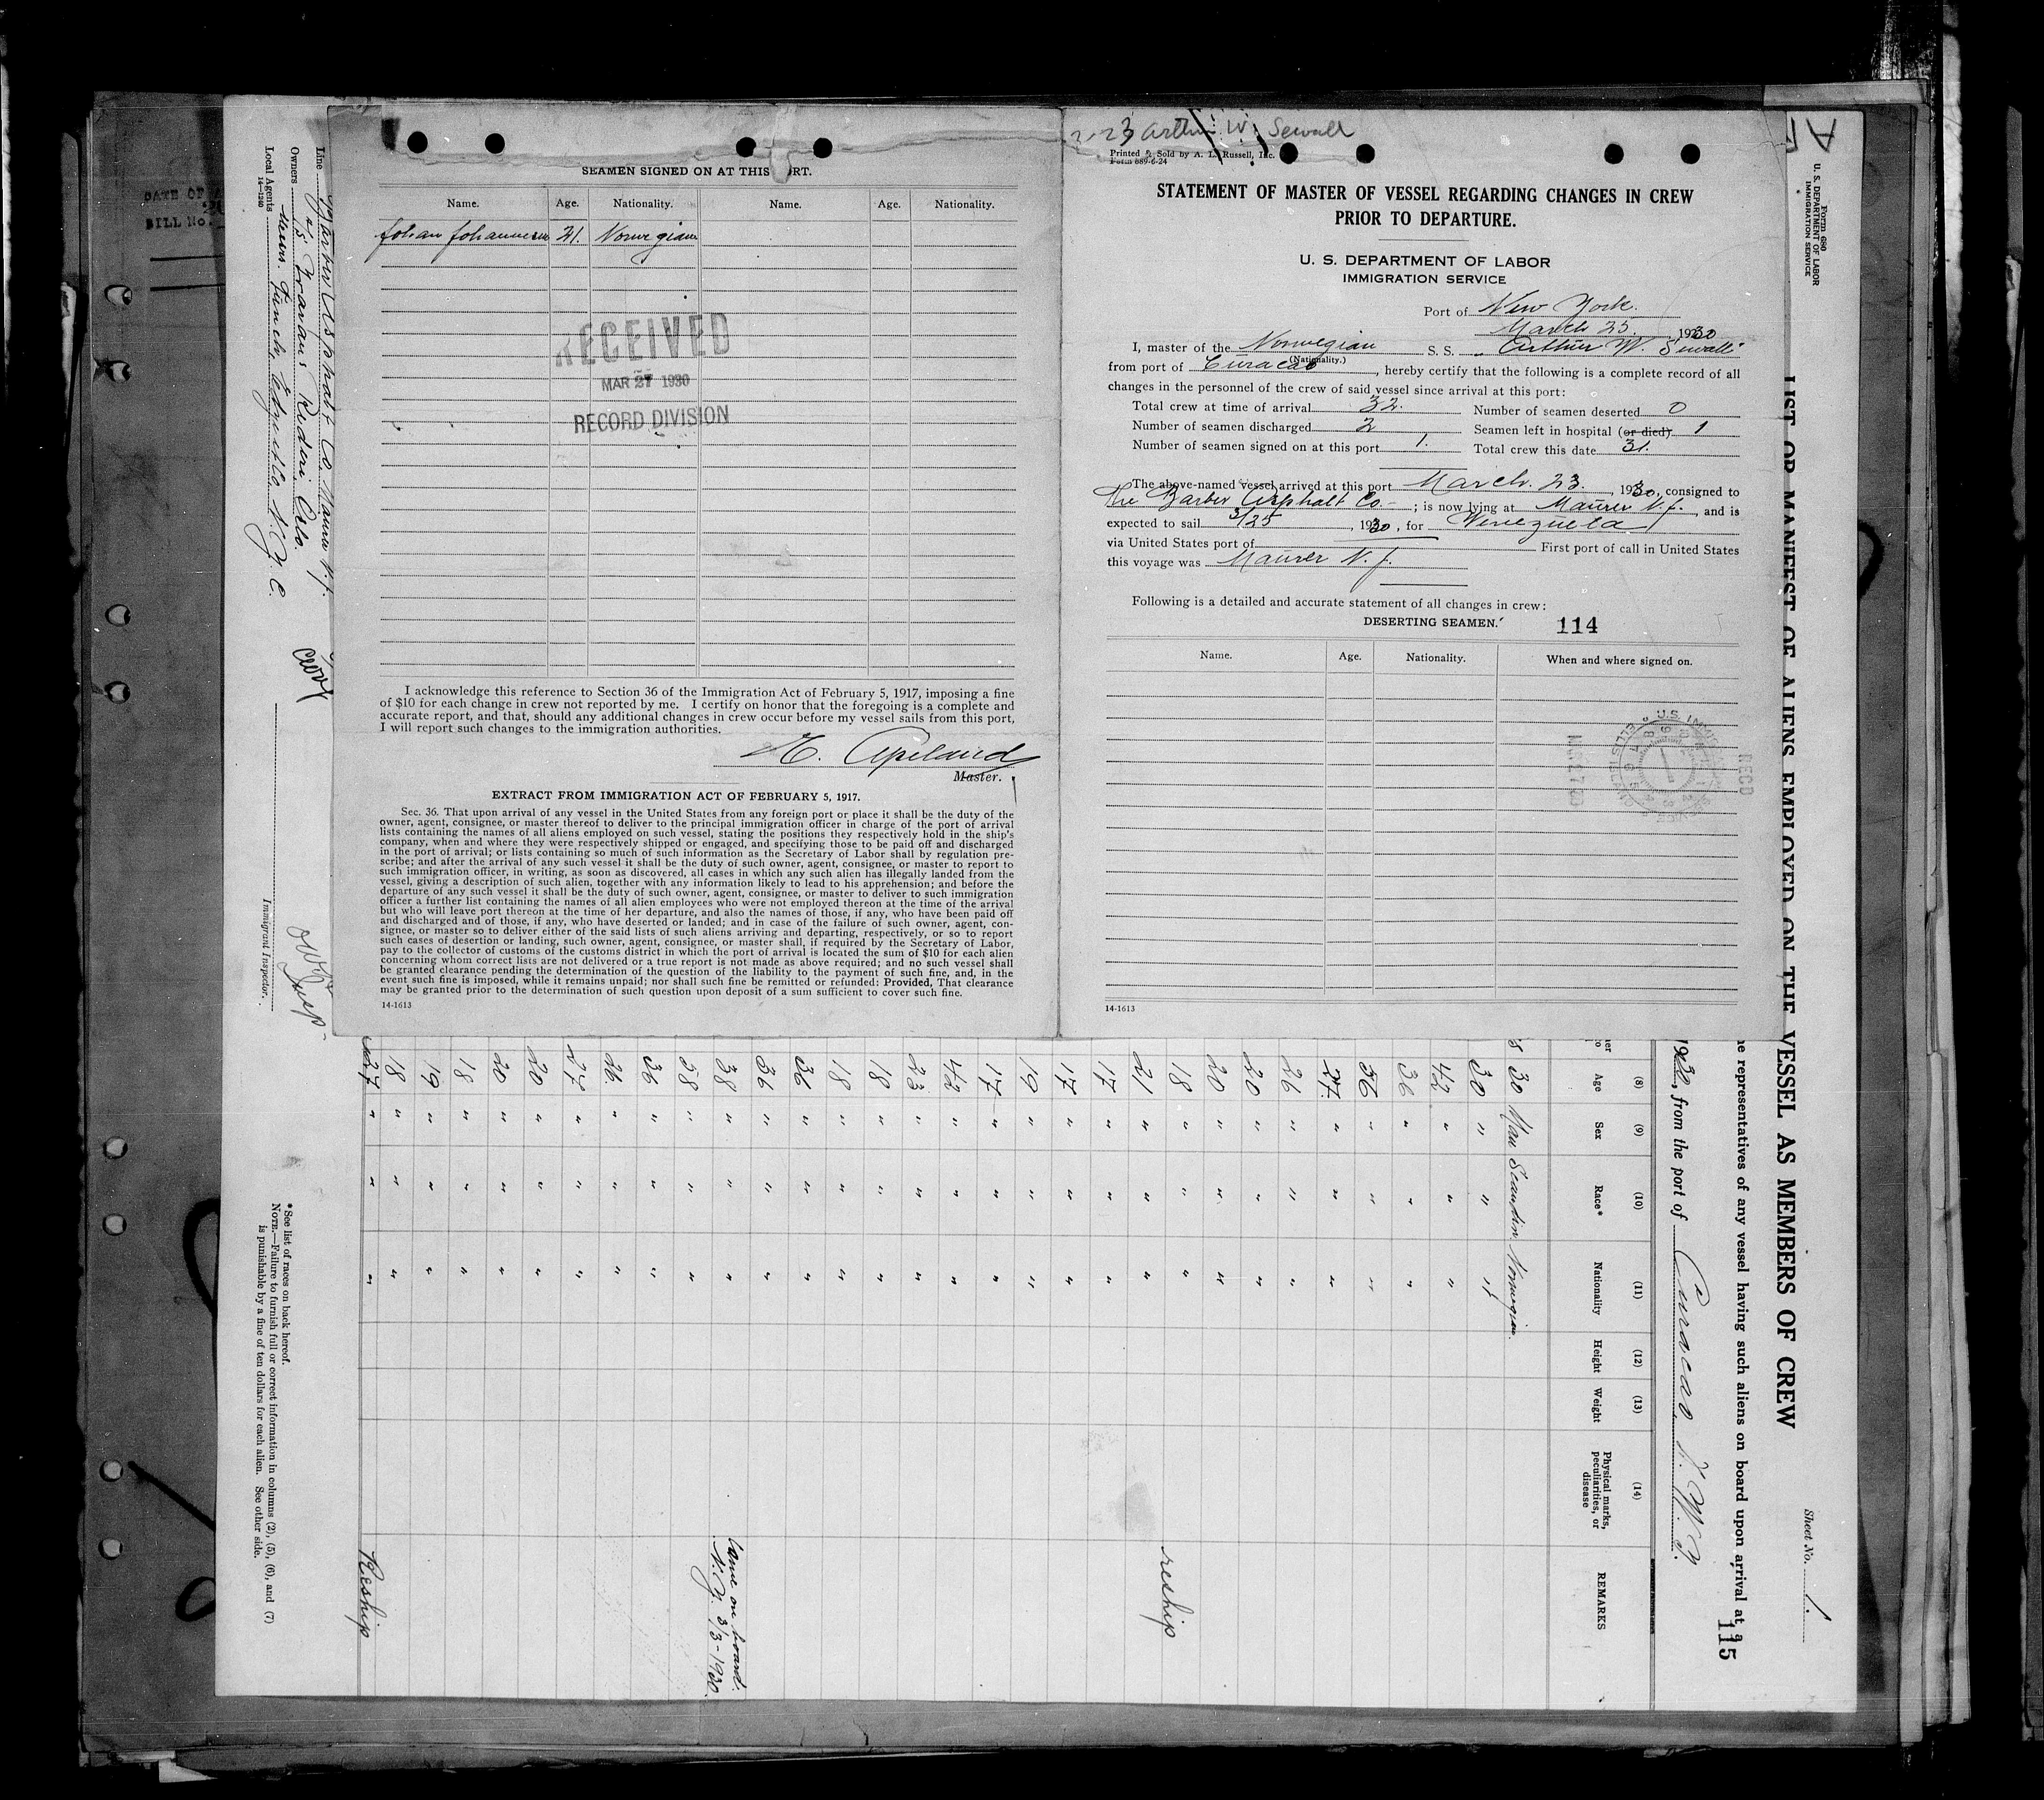 SEAMEN SIGNED ON AT THIS PORT.
Name. Age. Nationality. Name. Age. Nationality.
Johan Johannesen 21. Norwegian
RECEIVED
MAR 27 1930
RECORD DIVISION
I acknowledge this reference to Section 36 of the Immigration Act of February 5, 1917, imposing a fine
of $10 for each change in crew not reported by me. I certify on honor that the foregoing is a complete and
accurate report, and that, should any additional changes in crew occur before my vessel sails from this port,
I will report such changes to the immigration authorities.
Master.
EXTRACT FROM IMMIGRATION ACT OF FEBRUARY 5, 1917.
Sec. 36. That upon arrival of any vessel in the United States from any foreign port or place it shall be the duty of the
owner, agent, consignee, or master thereof to deliver to the principal immigration officer in charge of the port of arrival
lists containing the names of all aliens employed on such vessel, stating the positions they respectively hold in the ship's
company, when and where they were respectively shipped or engaged, and specifying those to be paid off and discharged
in the port of arrival; or lists containing so much of such information as the Secretary of Labor shall by regulation pre-
scribe; and after the arrival of any such vessel it shall be the duty of such owner, agent, consignee, or master to report to
such immigration officer, in writing, as soon as discovered, all cases in which any such alien has illegally landed from the
vessel, giving a description of such alien, together with any information likely to lead to his apprehension; and before the
departure of any such vessel it shall be the duty of such owner, agent, consignee, or master to deliver to such immigration
officer a further list containing the names of all alien employees who were not employed thereon at the time of the arrival
but who will leave port thereon at the time of her departure, and also the names of those, if any, who have been paid off
and discharged and of those, if any, who have deserted or landed; and in case of the failure of such owner, agent, con-
signee, or master so to deliver either of the said lists of such aliens arriving and departing, respectively, or so to report
such cases of desertion or landing, such owner, agent, consignee, or master shall, if required by the Secretary of Labor,
pay to the collector of customs of the customs district in which the port of arrival is located the sum of $10 for each alien
concerning whom correct lists are not delivered or a true report is not made as above required; and no such vessel shall
be granted clearance pending the determination of the question of the liability to the payment of such fine, and, in the
event such fine is imposed, while it remains unpaid; nor shall such fine be remitted or refunded: Provided, That clearance
may be granted prior to the determination of such question upon deposit of a sum sufficient to cover such fine.
14-1613
Arthur W. Sewall
Printed & Sold by A. L. Russell, Inc.
Form 689-6-24
STATEMENT OF MASTER OF VESSEL REGARDING CHANGES IN CREW
PRIOR TO DEPARTURE.
U. S. DEPARTMENT OF LABOR
IMMIGRATION SERVICE
Port of New York.
March 25. , 1930
I, master of the Norwegian S. S. Arthur W. Sewall
(Nationality.)
from port of Curacao , hereby certify that the following is a complete record of all
changes in the personnel of the crew of said vessel since arrival at this port:
Total crew at time of arrival 32. Number of seamen deserted 0
Number of seamen discharged 2 Seamen left in hospital (or died) 1
Number of seamen signed on at this port 1. Total crew this date 31.
The above-named vessel arrived at this port March. 23. , 1930, consigned to
The Barber Asphalt Co. ; is now lying at Maurer N.J. , and is
expected to sail 3/25 , 1930, for Venezuela
via United States port of First port of call in United States
this voyage was Maurer N.J.
Following is a detailed and accurate statement of all changes in crew:
DESERTING SEAMEN. 114
Name. Age. Nationality. When and where signed on.
RECD
14-1613
Form 680
U. S. DEPARTMENT OF LABOR
IMMIGRATION SERVICE
Sheet No. 1.
LIST OR MANIFEST OF ALIENS EMPLOYED ON THE VESSEL AS MEMBERS OF CREW
representatives of any vessel having such aliens on board upon arrival at a
115
1930, from the port of Curacao
(8) (9) (10) (11) (12) (13) (14)
Age Sex Race* Nationality Height Weight Physical marks, peculiarities, or disease REMARKS
30 Man Scandin. Norwegian.
30 " " "
42 " " "
36 " " "
56 " " "
27. " " "
26 " " "
20 " " "
20 " " "
18 " " " reship
21 " " "
17 " " "
17 " " "
19 " " "
17 " " "
42 " " "
23 " " "
18 " " "
18 " " "
36 " " "
36 " " "
38 " " " Came on board.
N.Y. 3/3-1930.
58 " " "
36 " " "
26 " " "
27 " " "
20 " " "
20 " " "
18 " " "
19 " " "
18 " " "
27 " " " Reship
Line Barber Asphalt Co. Maurer N.J.
Owners Rederi, Oslo.
Local Agents Messrs. Funch, Edye & Co. N.Y.C.
14-1240
Immigrant Inspector.
*See list of races on back hereof.
NOTE.—Failure to furnish full or correct information in columns (2), (5), (6), and (7)
is punishable by a fine of ten dollars for each alien. See other side.
DATE OF
BILL No.